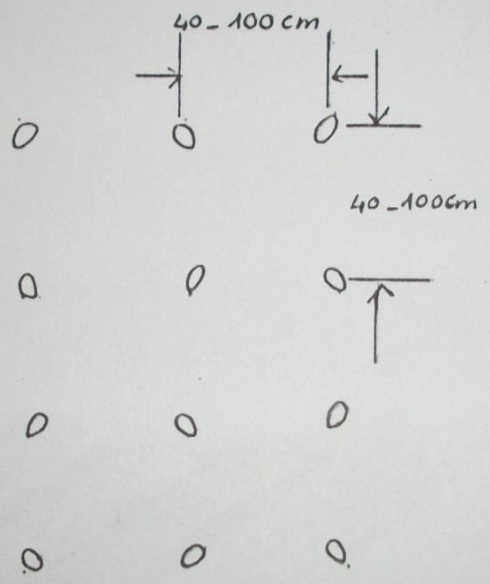 40-100 cm
40-100cm